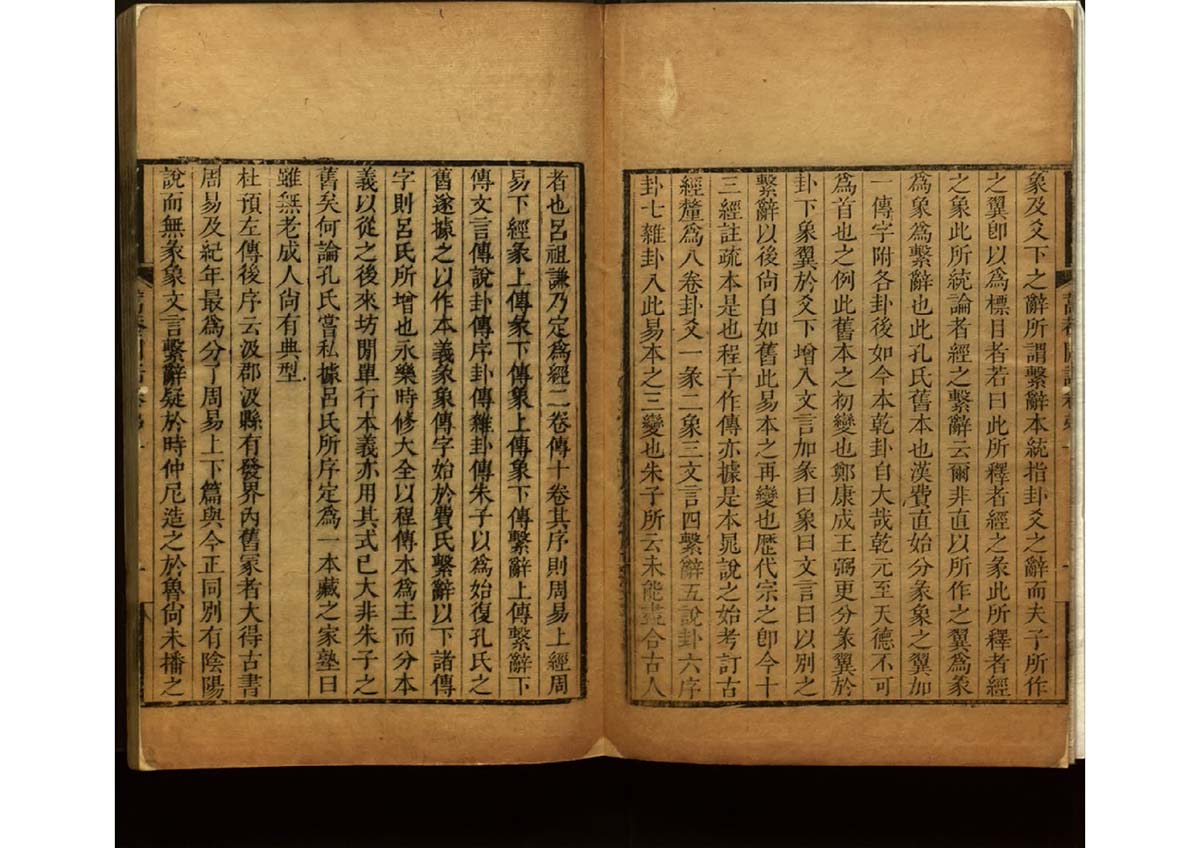 象及爻下之辭所謂繫辭本統指卦爻之辭而夫子所作
之翼卽以爲標目者若曰此所釋者經之彖此所釋者經
之象此所統論者經之繫辭云爾非直以所作之翼爲彖
爲象爲繫辭也此孔氏舊本也漢費直始分彖象之翼加
一傳字附各卦後如今本乾卦自大哉乾元至天德不可
爲首也之例此舊本之初變也鄭康成王弼更分彖翼於
卦下象翼於爻下增入文言加彖曰象曰文言曰以別之
繫辭以後尙自如舊此易本之再變也歷代宗之卽今十
三經註疏本是也程子作傳亦據是本晁說之始考訂古
經釐爲八卷卦爻一彖二象三文言四繫辭五說卦六序
卦七雜卦八此易本之三變也朱子所云未能盡合古人
者也呂祖謙乃定爲經二卷傳十卷其序則周易上經周
易下經彖上傳彖下傳象上傳象下傳繫辭上傳繫辭下
傳文言傳說卦傳序卦傳雜卦傳朱子以爲始復孔氏之
舊遂據之以作本義彖象傳字始於費氏繫辭以下諸傳
字則呂氏所增也永樂時修大全以程傳本爲主而分本
義以從之後來坊閒單行本義亦用其式已大非朱子之
舊矣何論孔氏嘗私據呂氏所序定爲一本藏之家塾曰
雖無老成人尙有典型
杜預左傳後序云汲郡汲縣有發界內舊冢者大得古書
周易及紀年最爲分了周易上下篇與今正同別有陰陽
說而無彖象文言繫辭疑於時仲尼造之於魯尙未播之